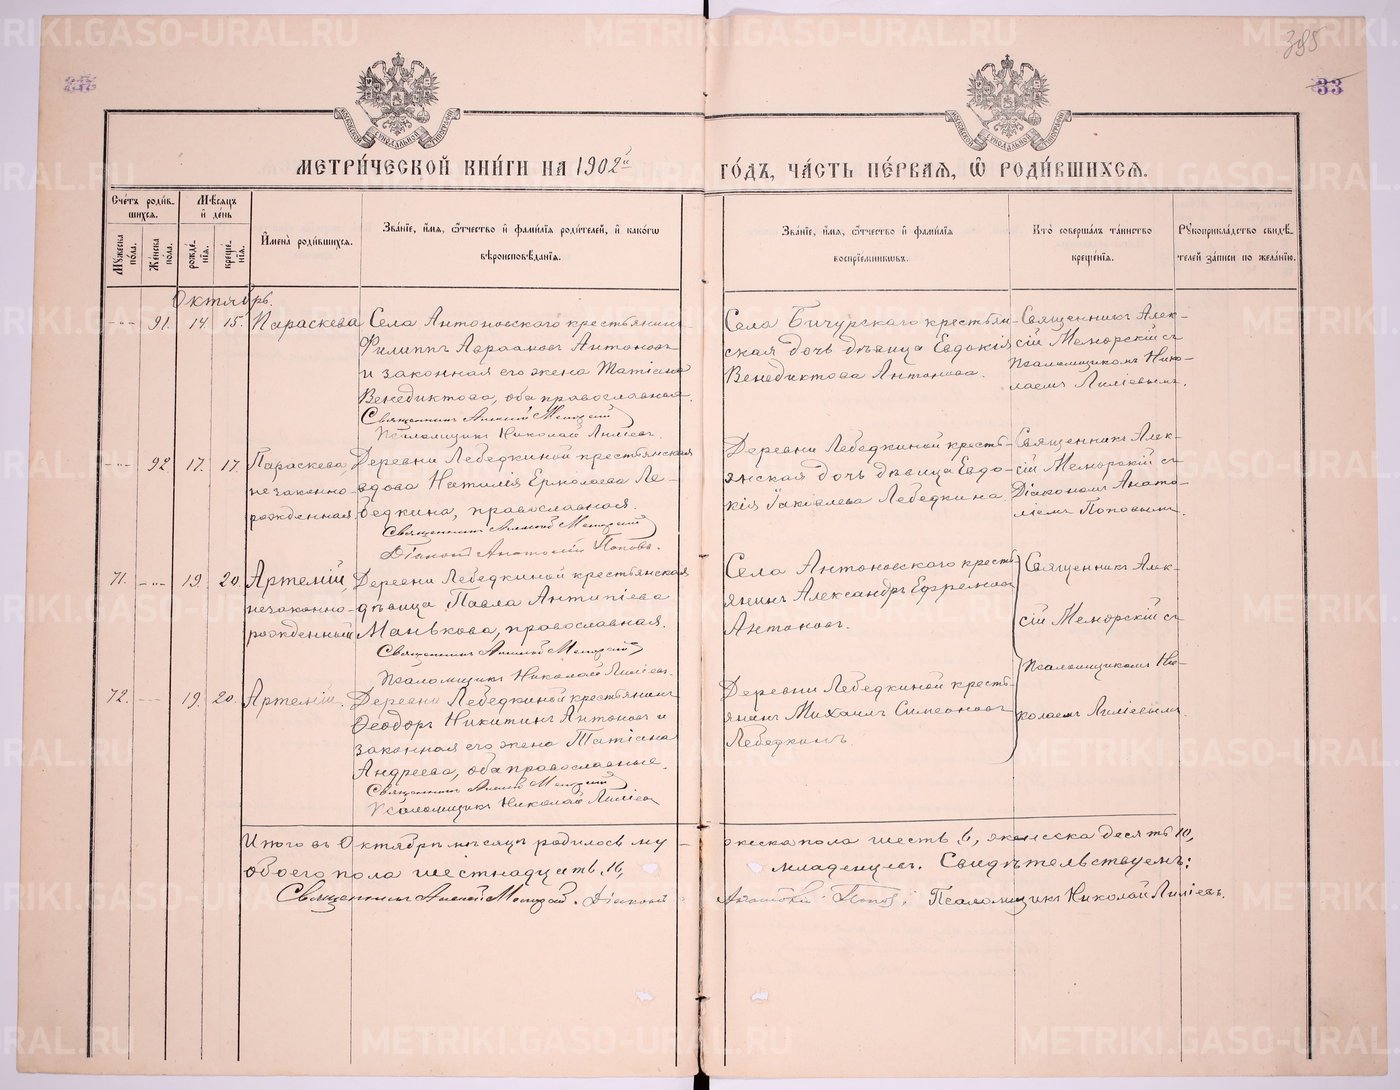 385
33
МОСКОВСКОЙ СѴНОДАЛЬНОЙ ТИПОГРАФІИ
МОСКОВСКОЙ СѴНОДАЛЬНОЙ ТИПОГРАФІИ
МЕТРИ́ЧЕСКОЙ КНИ́ГИ НА 1902й ГО́ДЪ, ЧА́СТЬ ПЕ́РВАѦ, Ѡ҆ РОДИ́ВШИХСѦ.
Счétъ роди́в-
шихсѧ.
Мꙋ́жеска по́ла.
Же́нска по́ла.
Мѣ́сѧцъ
и҆ де́нь
рожде́-
нїѧ.
креще́-
нїѧ.
И҆мена̀ роди́вшихсѧ.
Зва́нїе, и҆́мѧ, ѻ҆́тчество и҆ фами́лїѧ роди́телей, и҆ како́гѡ
вѣроисповѣ́данїѧ.
Зва́нїе, и҆́мѧ, ѻ҆́тчество и҆ фами́лїѧ
воспрїе́мниковъ.
Кто̀ соверша́лъ та́инство
креще́нїѧ.
Рꙋкоприкла́дство свидѣ́-
телей за́писи по жела́нїю.
Октябрь.
-"- 91. 14. 15. Параскева
Села Антоновскаго крестьянинъ
Филиппъ Авраамовъ Антоновъ
и законная его жена Татіана
Венедиктова, оба православные.
Священникъ Алексій Меморскій
Псаломщикъ Николай Лилѣевъ.
Села Бичурскаго крестьян-
ская дочь дѣвица Евдокія
Венедиктова Антонова.
Священникъ Алек-
сій Меморскій съ
Псаломщикомъ Нико-
лаемъ Лилѣевымъ.
-"- 92 17. 17. Параскева,
незаконно-
рожденная
Деревни Лебедкиной крестьянская
вдова Наталія Ермолаева Ле-
бедкина, православная.
Священникъ Алексій Меморскій
Діаконъ Анатолій Поповъ.
Деревни Лебедкиной кресть-
янская дочь дѣвица Евдо-
кія Іаковлева Лебедкина
Священникъ Алек-
сій Меморскій съ
Діакономъ Анато-
ліемъ Поповымъ.
71. -"- 19. 20. Артемій,
незаконно-
рожденный
Деревни Лебедкиной крестьянская
дѣвица Павла Антипіева
Манькова, православная.
Священникъ Алексій Меморскій
Псаломщикъ Николай Лилѣевъ.
Села Антоновскаго кресть-
янинъ Александръ Ефремовъ
Антоновъ.
Священникъ Алек-
сій Меморскій съ
Псаломщикомъ Ни-
колаемъ Лилѣевымъ.
72. -- 19. 20. Артемій.
Деревни Лебедкиной крестьянинъ
Ѳеодоръ Никитинъ Антоновъ и
законная его жена Татіана
Андреева, оба православные.
Священникъ Алексій Меморскій
Псаломщикъ Николай Лилѣевъ
Деревни Лебедкиной кресть-
янинъ Михаилъ Симеоновъ
Лебедкинъ
Итого въ Октябрѣ мѣсяцѣ родилось му-
жеска пола шесть 6, женска десять 10,
обоего пола шестнадцать 16, младенцевъ. Свидѣтельствуемъ:
Священникъ Алексій Меморскій. Діаконъ Анатолій Поповъ. Псаломщикъ Николай Лилѣевъ.
METRIKI.GASO-URAL.RU